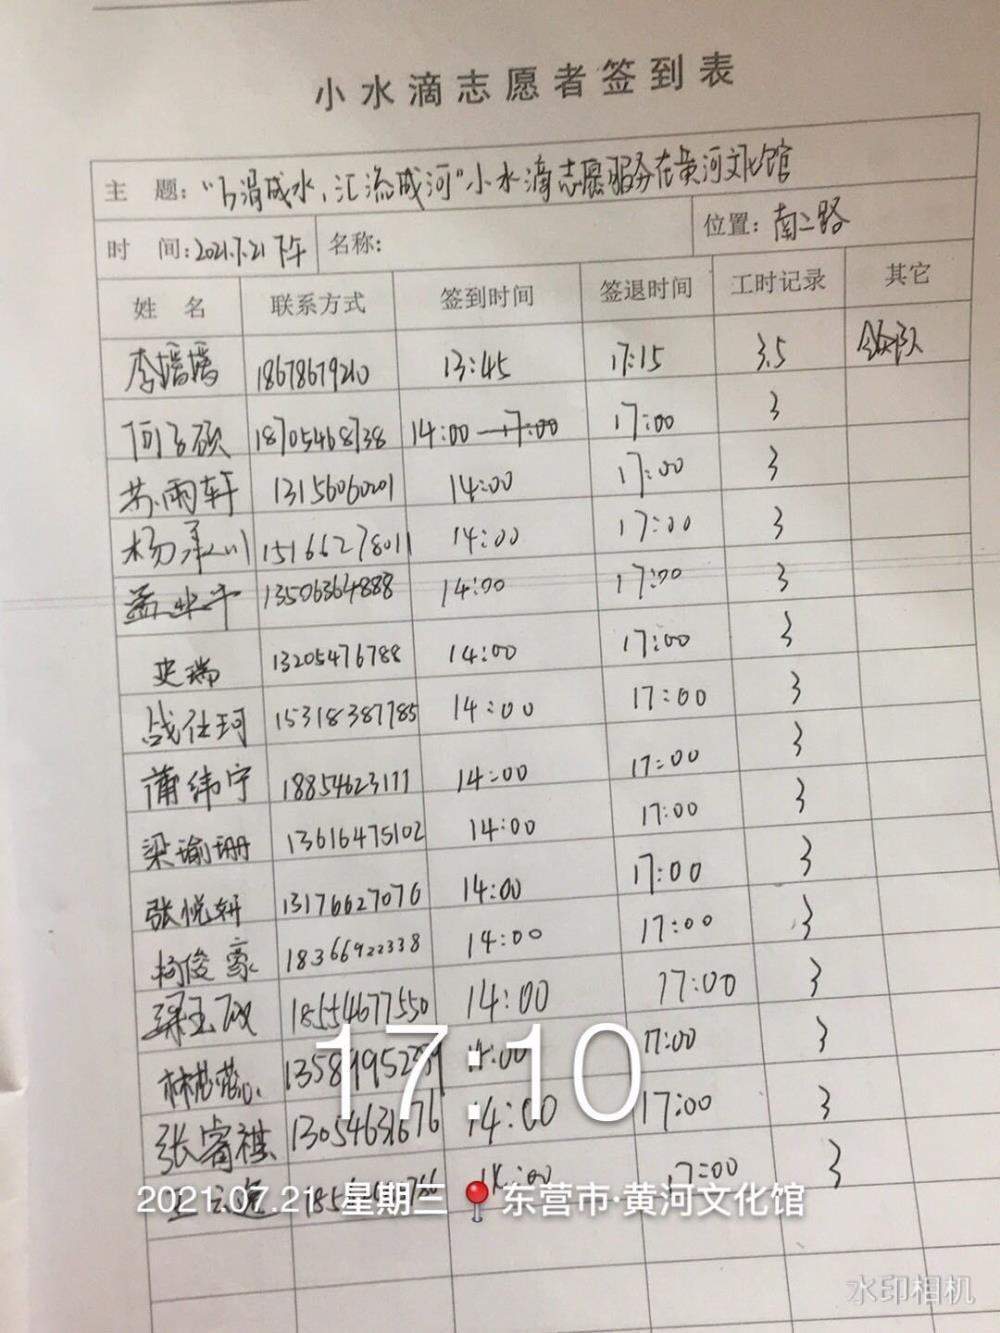 小水滴志愿者签到表
主 题：“小涓成水，汇流成河”小水滴志愿服务在黄河文化馆
时 间：2021.7.21下午 名称： 位置：南二路
姓 名 联系方式 签到时间 签退时间 工时记录 其它
李瑶瑶 18678679210 13:45 17:15 3.5 领队
何子硕 18705468738 14:00—17:00 17:00 3
苏雨轩 13156060201 14:00 17:00 3
杨承川 15166278011 14:00 17:00 3
孟业平 13506364888 14:00 17:00 3
史瑞 13205476788 14:00 17:00 3
战仕珂 15318387785 14:00 17:00 3
蒲纬宁 18854623111 14:00 17:00 3
梁瑜珊 13616475102 14:00 17:00 3
张悦轩 13176627076 14:00 17:00 3
杨俊豪 18366922338 14:00 17:00 3
18554677550 14:00 17:00 3
林 14:00 17:00 3
张睿祺 14:00 17:00 3
王 14:00 17:00 3
17:10
2021.07.21 星期三 东营市·黄河文化馆
水印相机